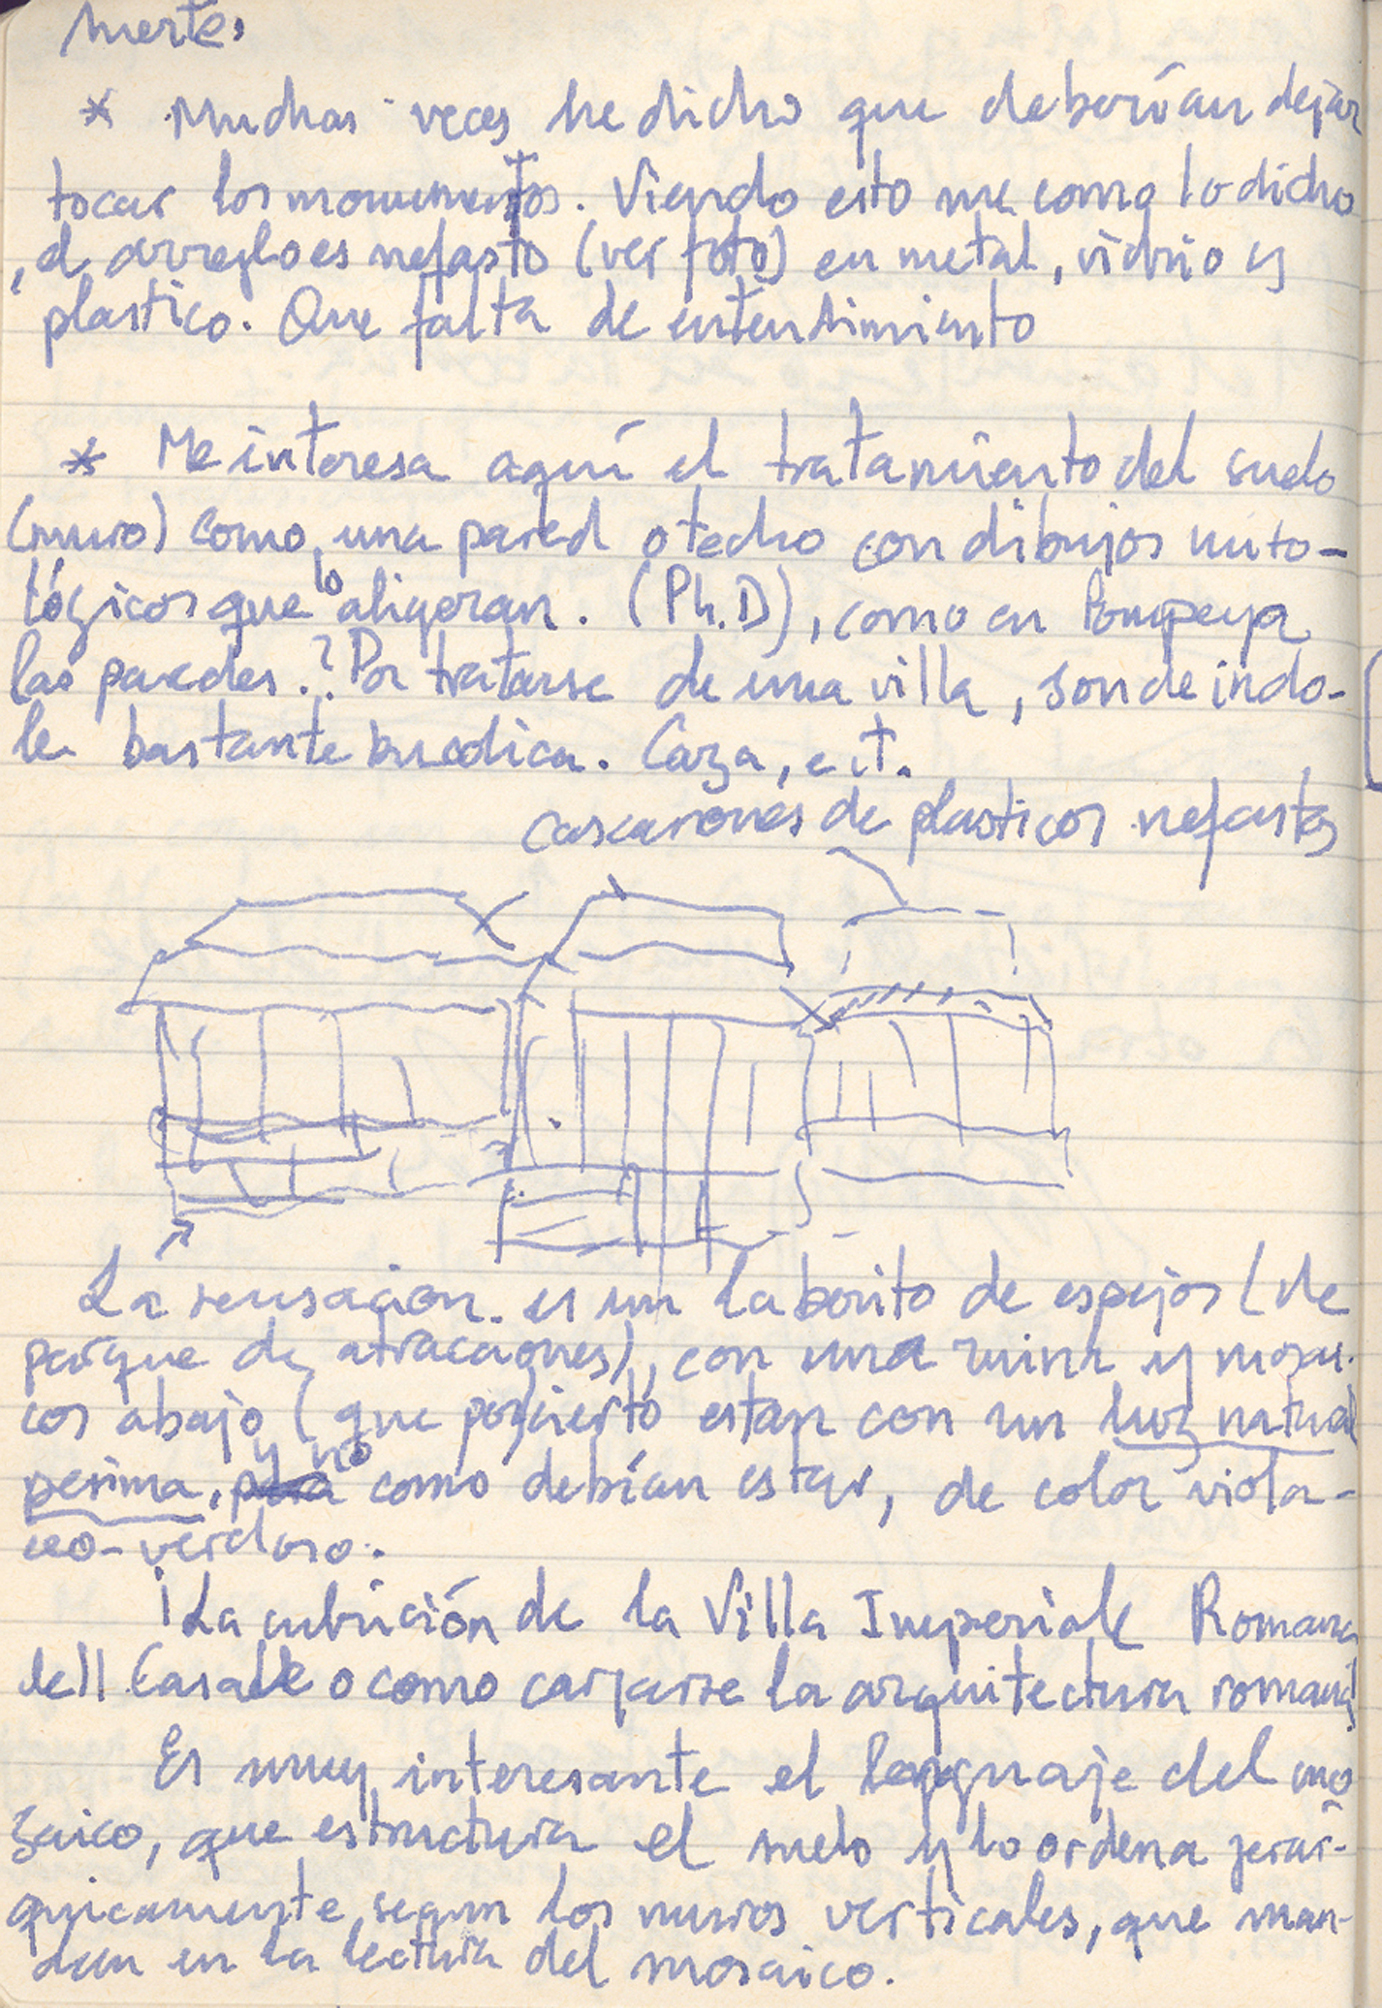 muerte.
* Muchas veces he dicho que deberían dejar
tocar los monumentos. Viendo esto me como lo dicho
, el arreglo es nefasto (ver foto) en metal, vidrio y
plastico. Que falta de entendimiento
* Me interesa aquí el tratamiento del suelo
(muro) como una pared o techo con dibujos mito-
lógicos que lo aligeran. (Ph.D), como en Pompeya
las paredes.? Por tratarse de una villa, son de indo-
le bastante bucolica. Caza, ect.
cascarones de plasticos nefastos
La sensacion. es un laberito de espejos (de
parque de atracciones), con una ruina y mosai-
cos abajo (que por cierto estan con un luz natural
pesima, y no como debían estar, de color viola-
ceo-verdoso.
¡La cubrición de la Villa Imperiale Romana
dell Casale o como cargarse la arquitectura romana!
Es muy interesante el lenguaje del mo
saico, que estructura el suelo y lo ordena jerár-
quicamente, segun los muros verticales, que man-
dan en la lectura del mosaico.